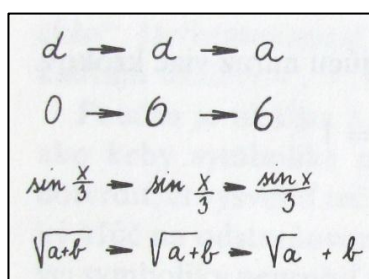 d → d → a
0 → 6 → 6
sin x/3 → sin x/3 → sin x/3
√a+b → √a+b → √a + b